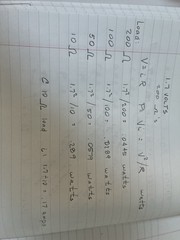 1.7 volts
200 Ω =
Load V = I.R P = V²/R watts
200 Ω 1.7²/200 = .0145 watts
100 Ω 1.7²/100 = .0289 watts
50 Ω 1.7²/50 = .0578 watts
10 Ω 1.7²/10 = .289 watts
@ 10 Ω load 1.7 ÷ 10 = .17 amps